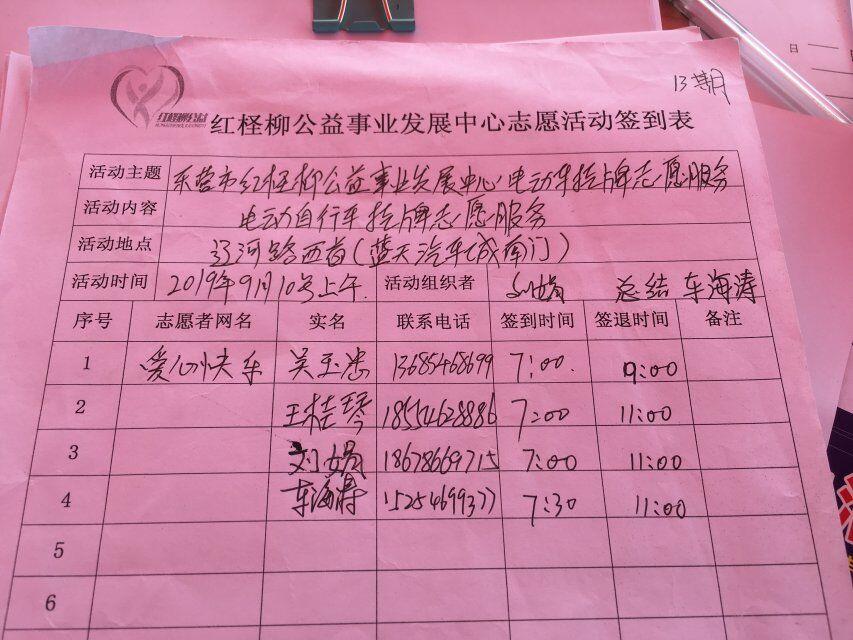 13期
红柽柳公益
红柽柳公益事业发展中心志愿活动签到表
活动主题 东营市红柽柳公益事业发展中心电动车挂牌志愿服务
活动内容 电动自行车挂牌志愿服务
活动地点 辽河路西首(蓝天汽车城南门)
活动时间 2019年9月10号上午. 活动组织者 刘娟 总结 车海涛
序号 志愿者网名 实名 联系电话 签到时间 签退时间 备注
1 爱心快车 吴玉忠 13685468699 7:00. 9:00
2 王桂琴 18554628886 7:00 11:00
3 刘娟 18678669715 7:00 11:00
4 车海涛 15254699377 7:30 11:00
5
6
日